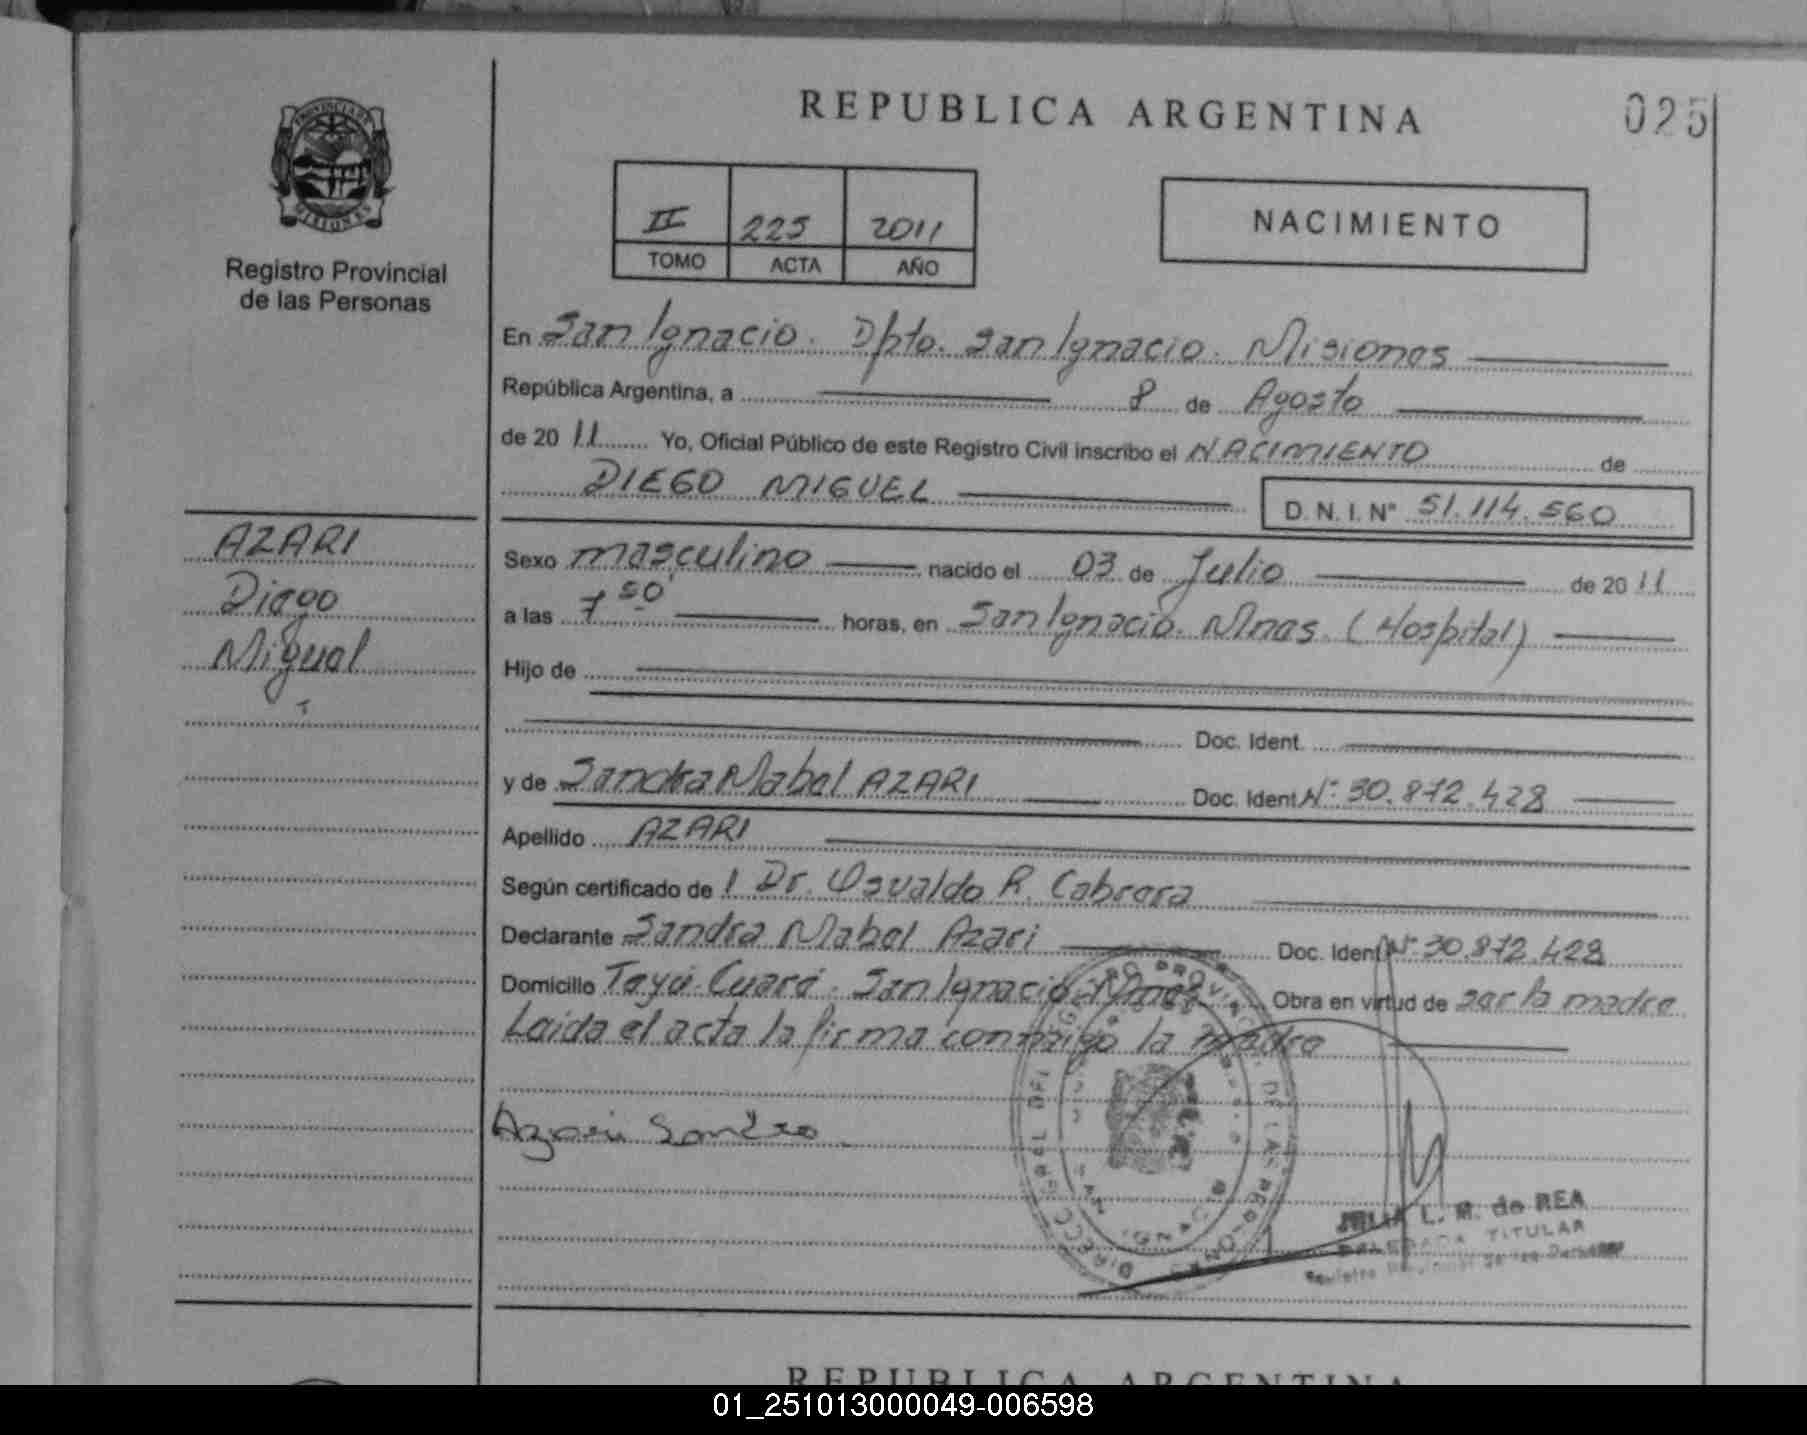 REPUBLICA ARGENTINA
025
PROVINCIA DE
MISIONES
Registro Provincial
de las Personas
II 225 2011
TOMO ACTA AÑO
NACIMIENTO
En San Ignacio. Dpto. San Ignacio. Misiones
República Argentina, a 8 de Agosto
de 20 11 Yo, Oficial Público de este Registro Civil inscribo el NACIMIENTO de
DIEGO MIGUEL D. N. I. N° 51.114.560
AZARI
Diego
Miguel
Sexo masculino nacido el 03 de Julio de 20 11
a las 7 50' horas, en San Ignacio. Mnes. (Hospital)
Hijo de
Doc. Ident.
y de Sandra Mabel AZARI Doc. Ident N° 30.872.428
Apellido AZARI
Según certificado de l Dr. Osvaldo R. Cabrera
Declarante Sandra Mabel Azari Doc. Ident N° 30.872.428
Domicilio Teyú Cuaré. San Ignacio. Mnes Obra en virtud de ser la madre
Leida el acta la firma conmigo la madre
Azari Sandra
JULIA L. M. de REA
DELEGADA TITULAR
Registro Provincial de las Personas
REPUBLICA ARGENTINA
01_251013000049-006598